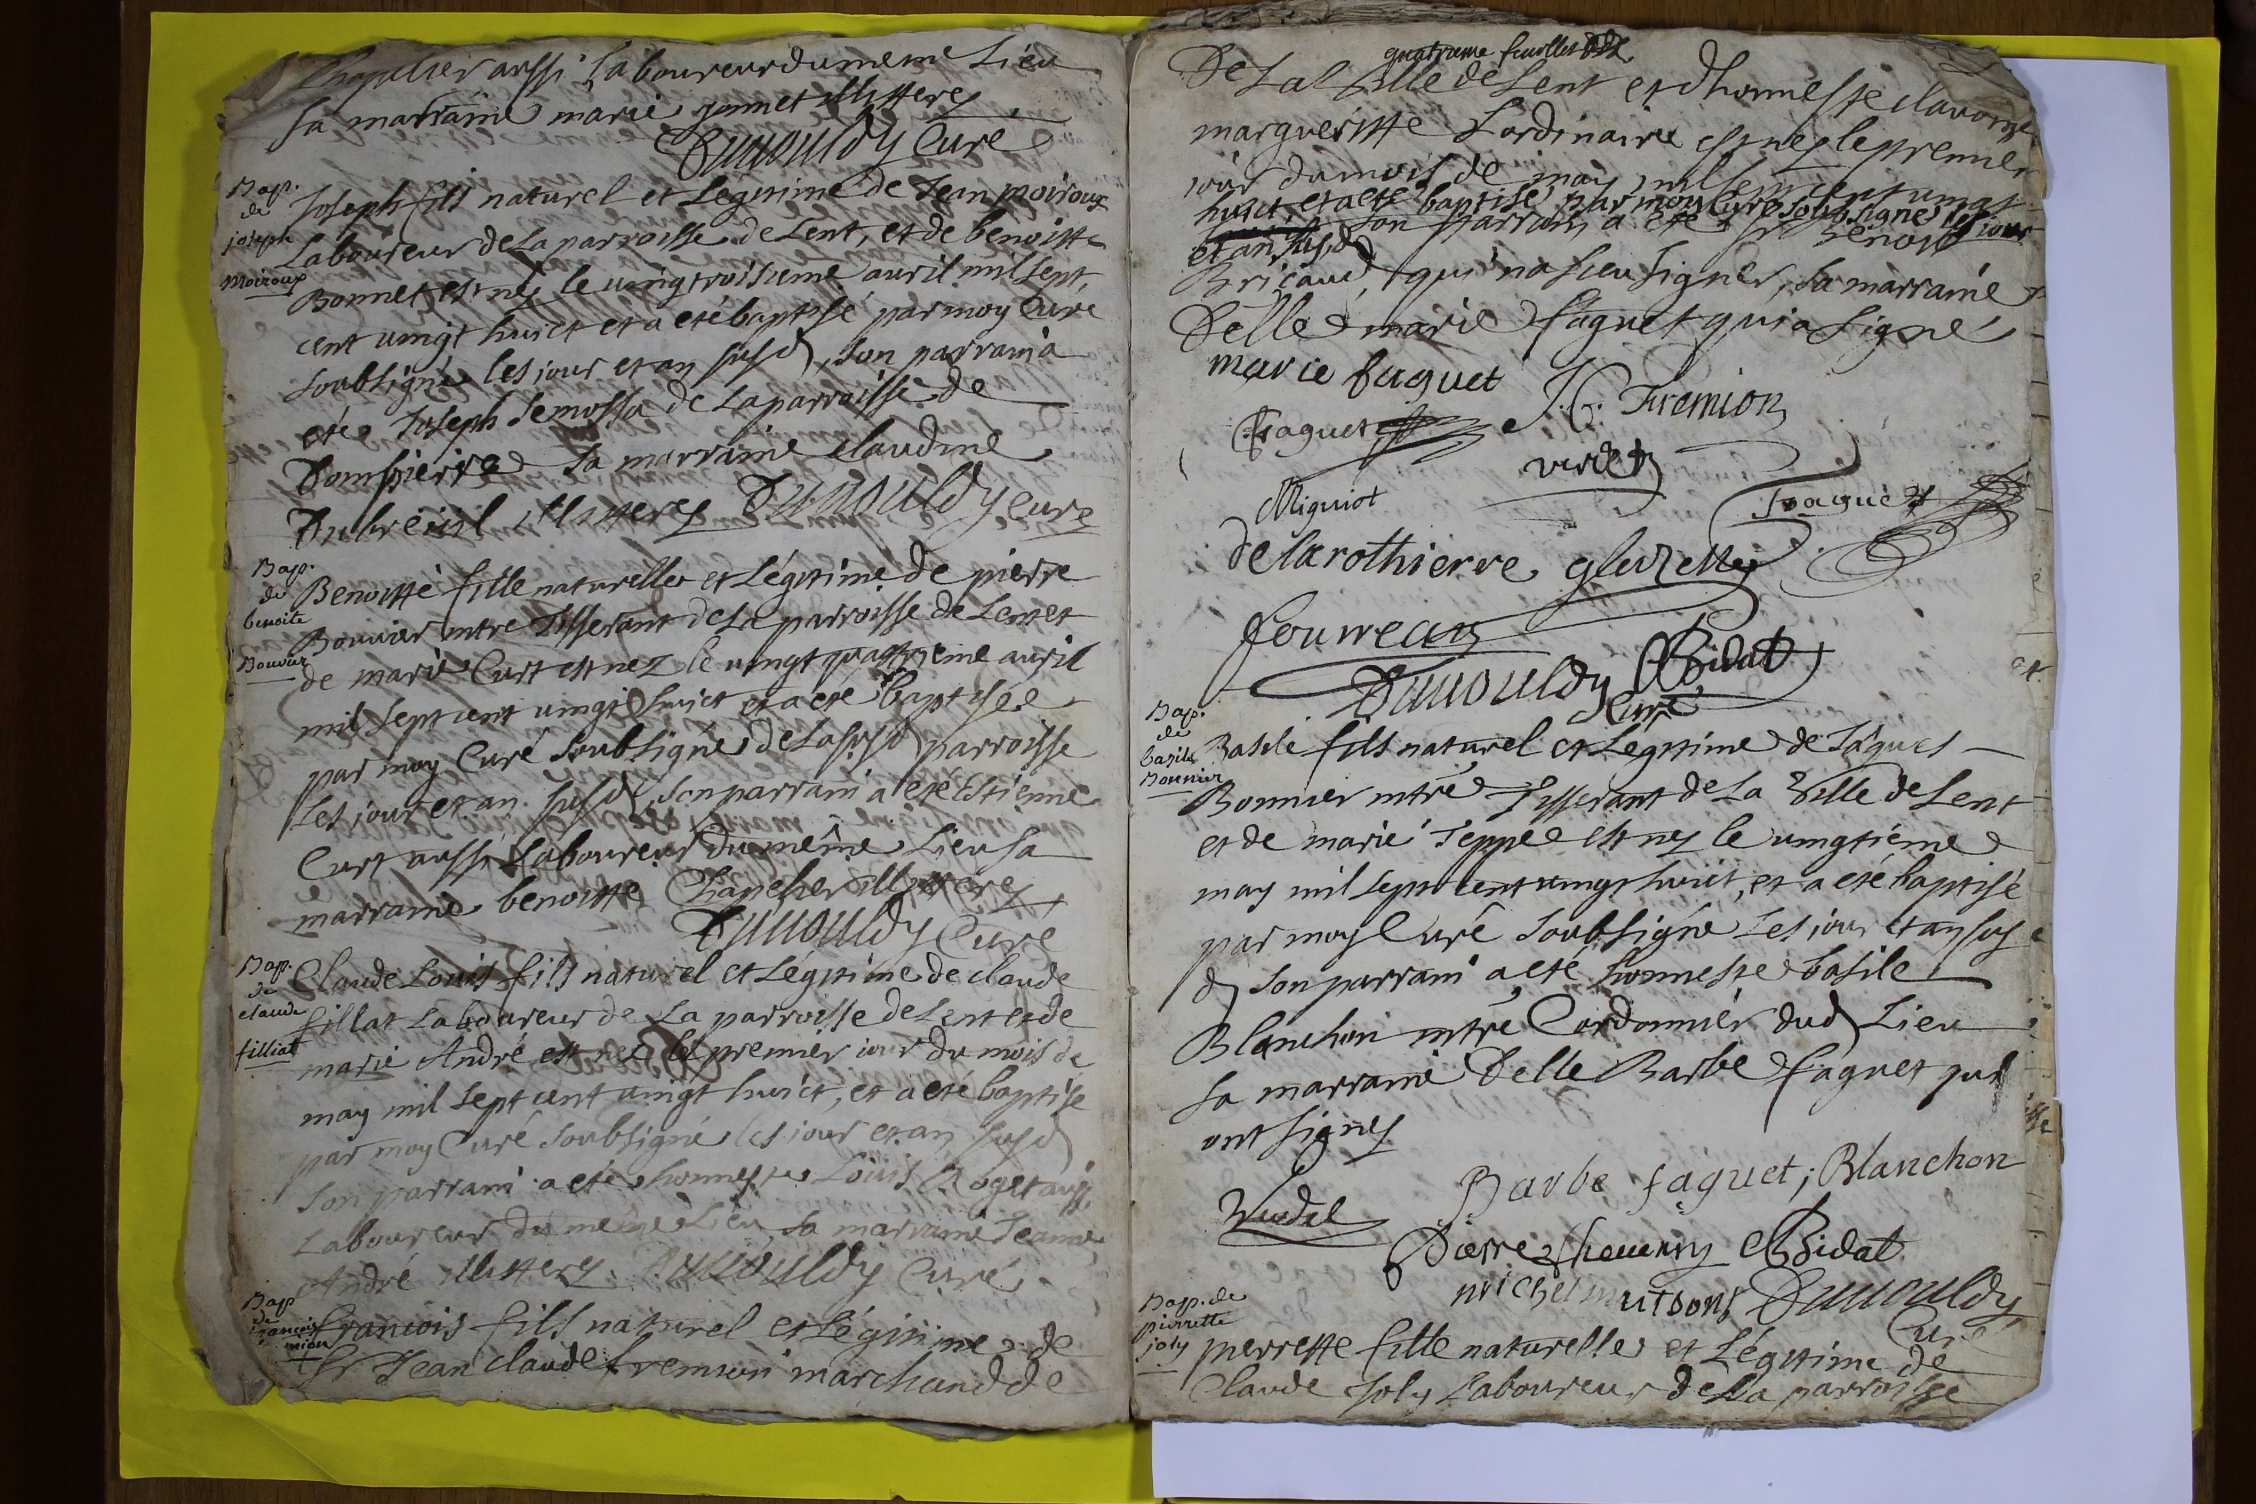 Chapelier aussi Laboureur du meme Lieu
sa marraine marie jannet illitterez
Dunouldy Curé
Bap.
de
joseph
Moiroux
Joseph fils naturel et Légitime de Jean moiroux
Laboureur de La parroisse de Lent, et de benoitte
Bonnet est néz le vingtroisieme auril mil sept,
cent vingt huict et a eté baptisé par moy Curé
soubsigné les jour et an susd, son parrain a
eté Joseph Semossa de La parroisse de
Dompierre sa marraine claudine
Dubreuil illitterez Dunouldy curé
Bap.
de
benoite
Bouvier
Benoitte fille naturelle et Légitime de pierre
Bouvier mtre Tisserant de La parroisse de Lent et
de marie Curt est nez le vingt quatrieme auril
mil sept cent vingt huict et a eté baptisée
par moy Curé soubsigné de La susd parroisse
Les jour et an susd, son parrain a eté Etienne
Curt aussi Laboureur du même Lieu sa
marraine benoitte Chapelier illitterez
Dunouldy Curé
Bap.
de
claude
filliat
Claude Louis fils naturel et Légitime de claude
fillat Laboureur de La parroisse de Lent et de
marie André est nez le premier jour du mois de
may mil sept cent vingt huict, et a eté baptisé
par moy Curé soubsigné les jour et an susd
son parrain a eté honneste Louis Roget aussi
Laboureur du même Lieu sa marraine Jeanne
André illitterez Dunouldy Curé
Bap
de
francois
françois fils naturel et Légitime de
Sr Jean claude fremion marchand de
quatrieme feuillet
De La Ville de Lent et d'honneste
margueritte Lordinaire est nez le premier
jour du mois de may mil sept cent vingt
huict, et a eté baptisé par moy Curé soubsigné les jour
et an susd son parrain a eté Sr Benoist
Bricaud, qui na sceu signer, sa marraine
Delle marie faguet qui a signé
marie faguet J.C. Fremion
faguet
verdet
Miguiot
faguet
delarothierre
fourreau
Dunouldy Bidat
Curé
Bap.
de
bazile
Bonnier
Basile fils naturel et Légitime de Jaques
Bonnier mtre Tisserant de La Ville de Lent
et de marie Teppe est nez le vingtième
may mil sept cent vingt huict, et a eté baptisé
par moy Curé soubsigné Les jour et an sus
d, son parrain a eté honneste basile
Blanchon mtre Cordonnier dud Lieu
sa marraine Delle Barbe faguet qui
ont signez
Barbe faguet; Blanchon
Pierre Bidat
michel Dunouldy
Curé
Bap. de
pierrette
joly
pierrette fille naturelle et Légitime de
Claude Joly Laboureur de La parroisse